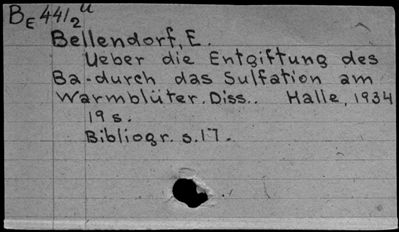 BE 44/2 u
Bellendorf, E.
Ueber die Entgiftung des
Ba-durch das Sulfation am
Warmblüter. Diss.. Halle, 1934
19 s.
Bibliogr. s.17.